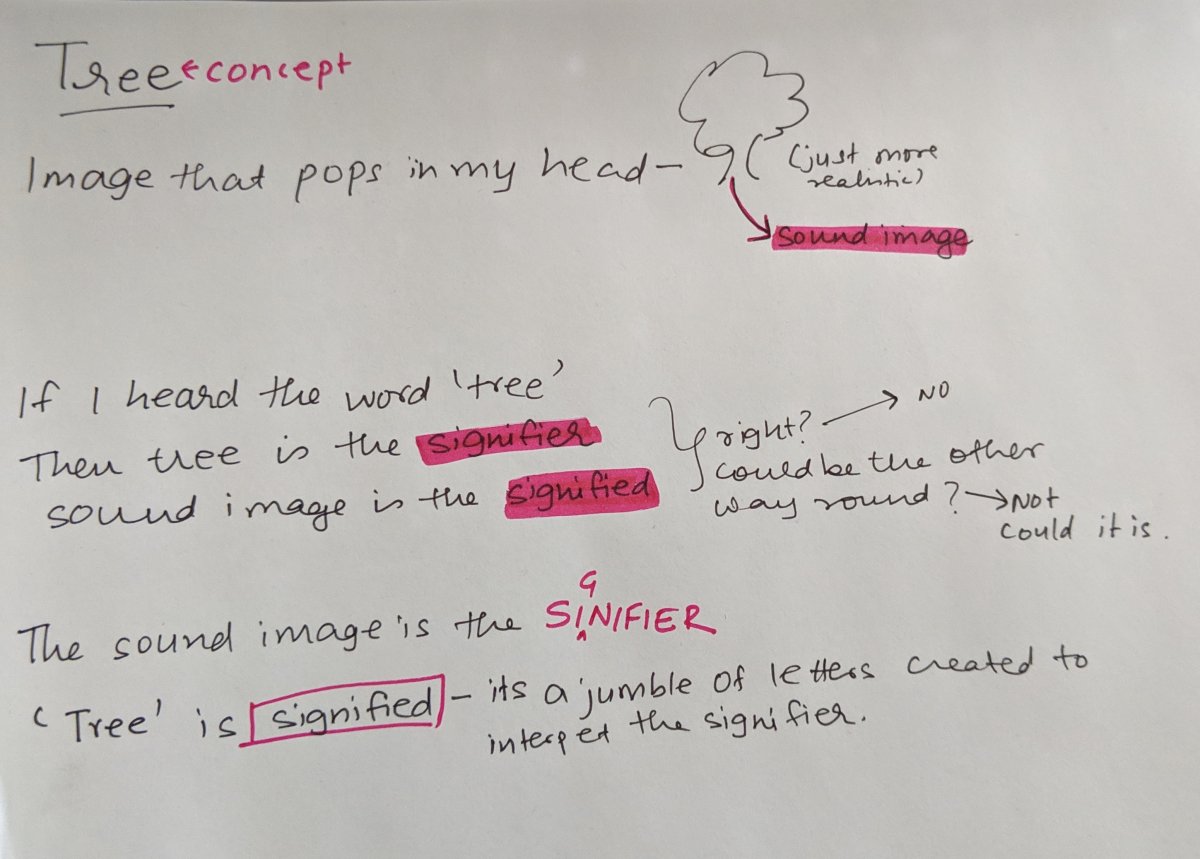 Tree ← concept
Image that pops in my head –
(just more
realistic)
sound image
If I heard the word 'tree'
Then tree is the signifier
sound image is the signified
right? → NO
could be the other
way round? → Not
could it is.
The sound image is the SIGNIFIER
'Tree' is signified – its a jumble of letters created to
interpet the signifier.